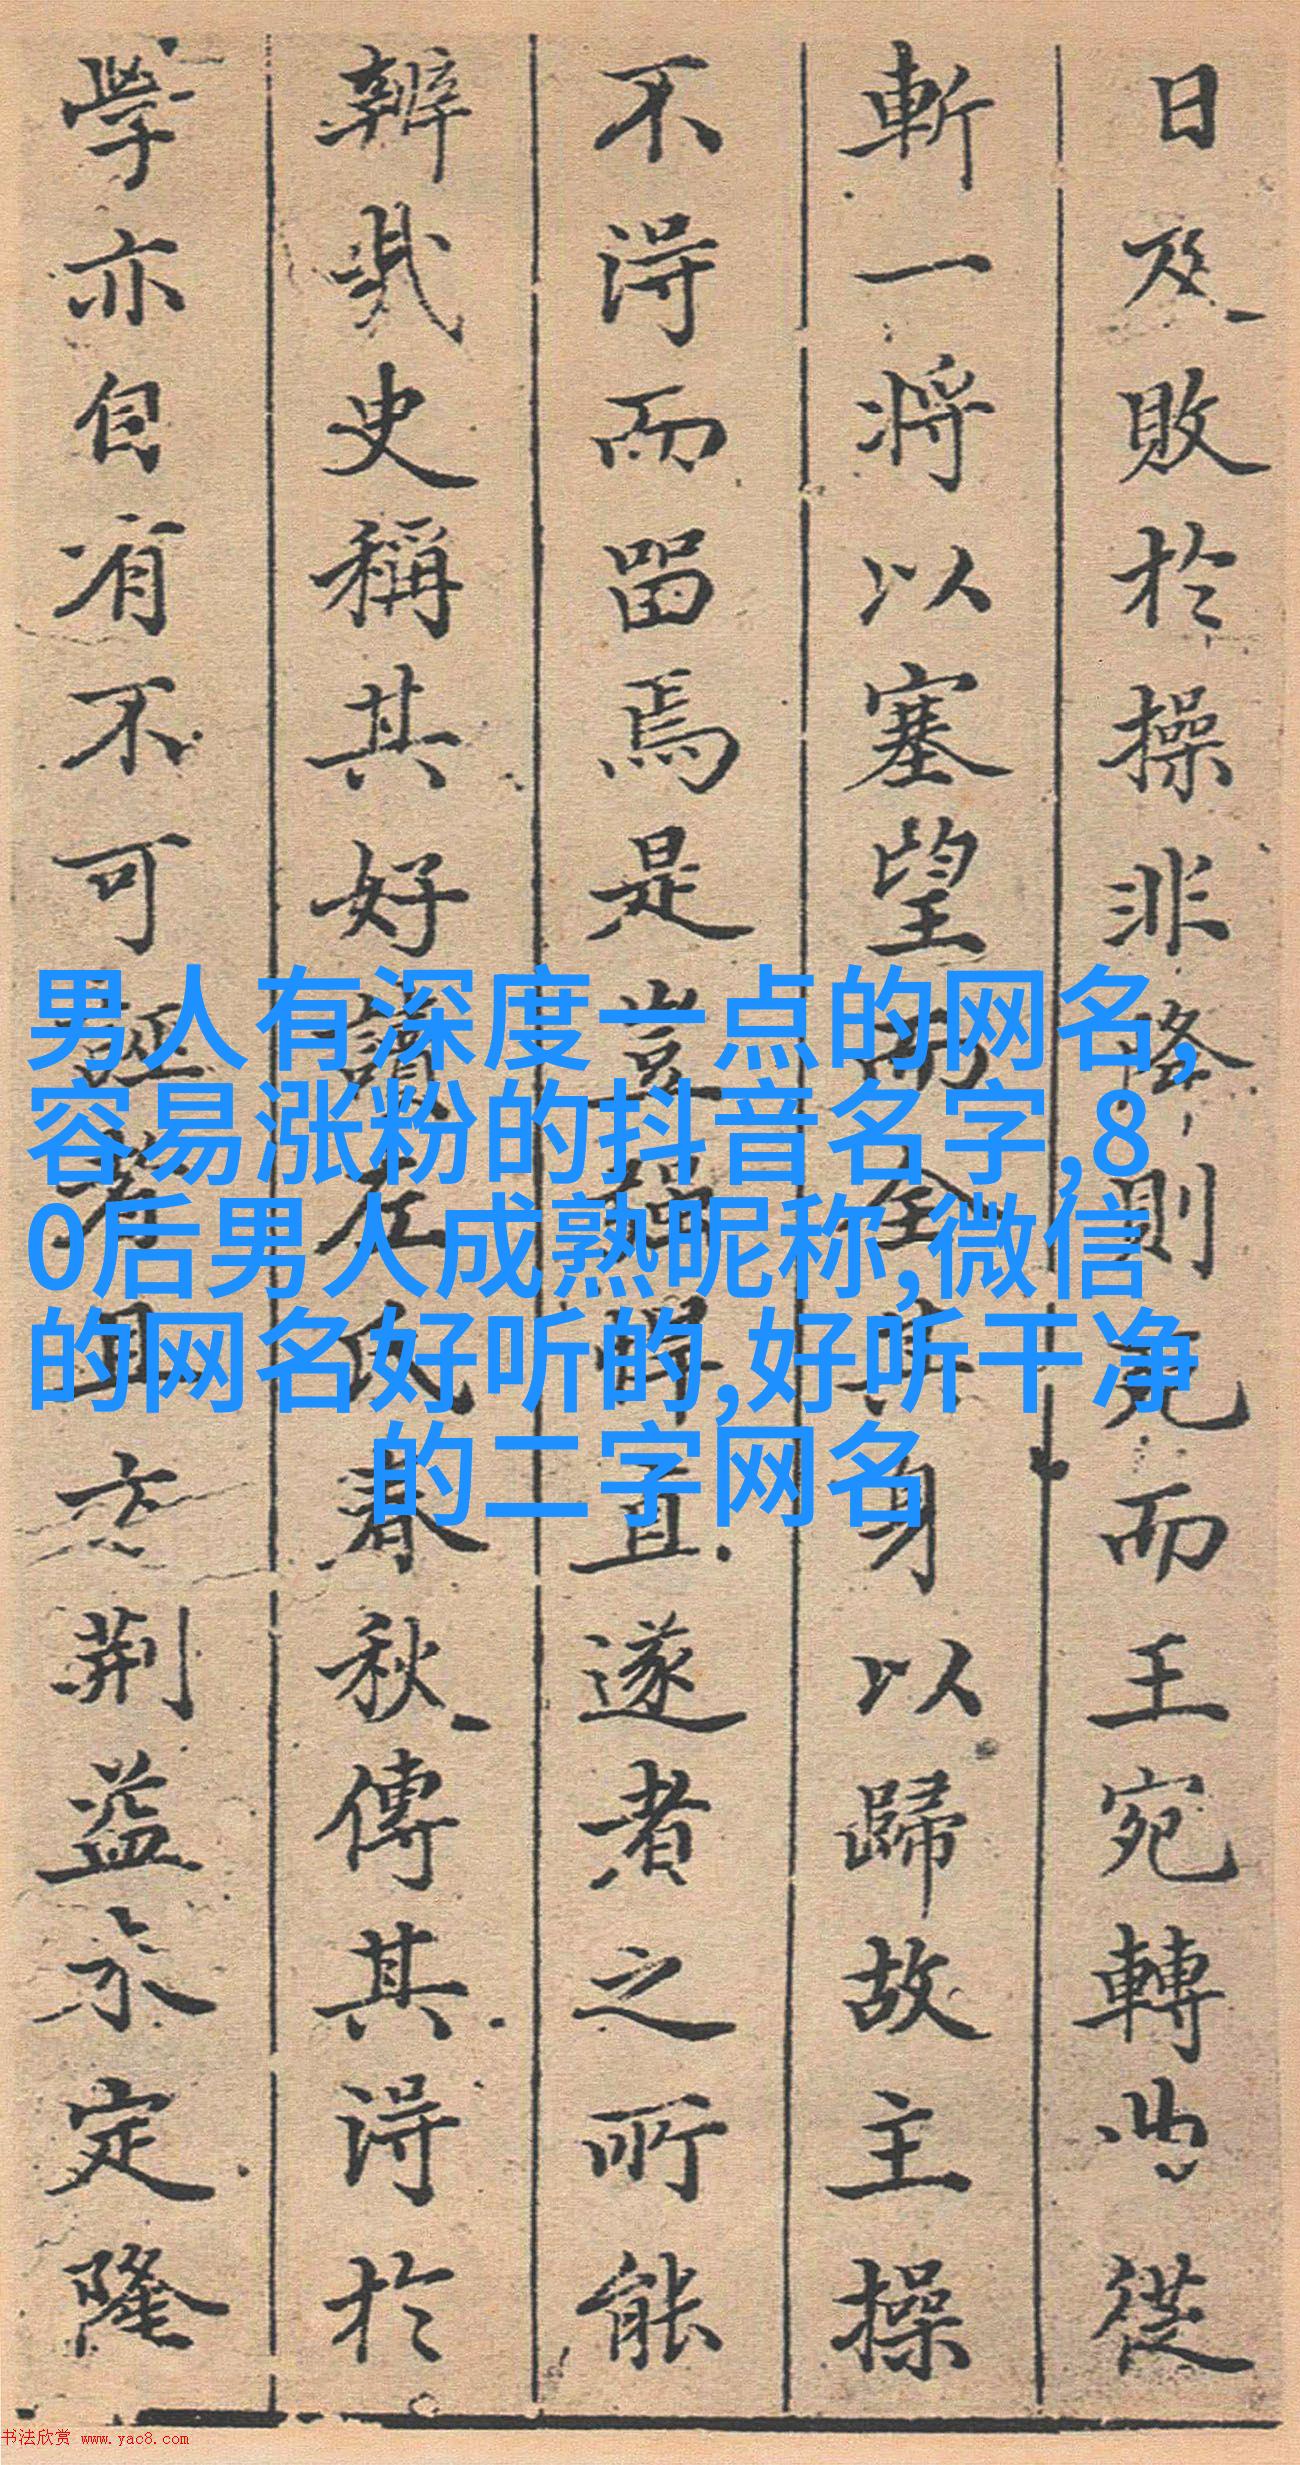 日及敗於操非降則死而王宛轉曲從
斬一將以塞望而全其身以歸故主操
不得而留焉是豈獨悍直遂者之所能
辨哉史稱其好讀左氏春秋傳其得於
學亦自有不可誣者且荊益未定隆
男人有深度一点的网名,
容易涨粉的抖音名字,8
0后男人成熟昵称,微信
的网名好听的,好听干净
的二字网名
书法欣赏 www.yac8.com